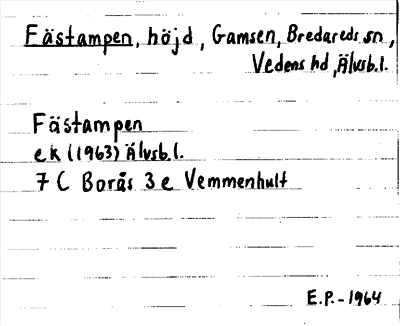 Fästampen, höjd, Gamsen, Bredareds sn,
Vedens hd, Älvsb.l.
Fästampen
ek (1963) Älvsb.l.
7 C Borås 3 e Vemmenhult
E.P.-1964